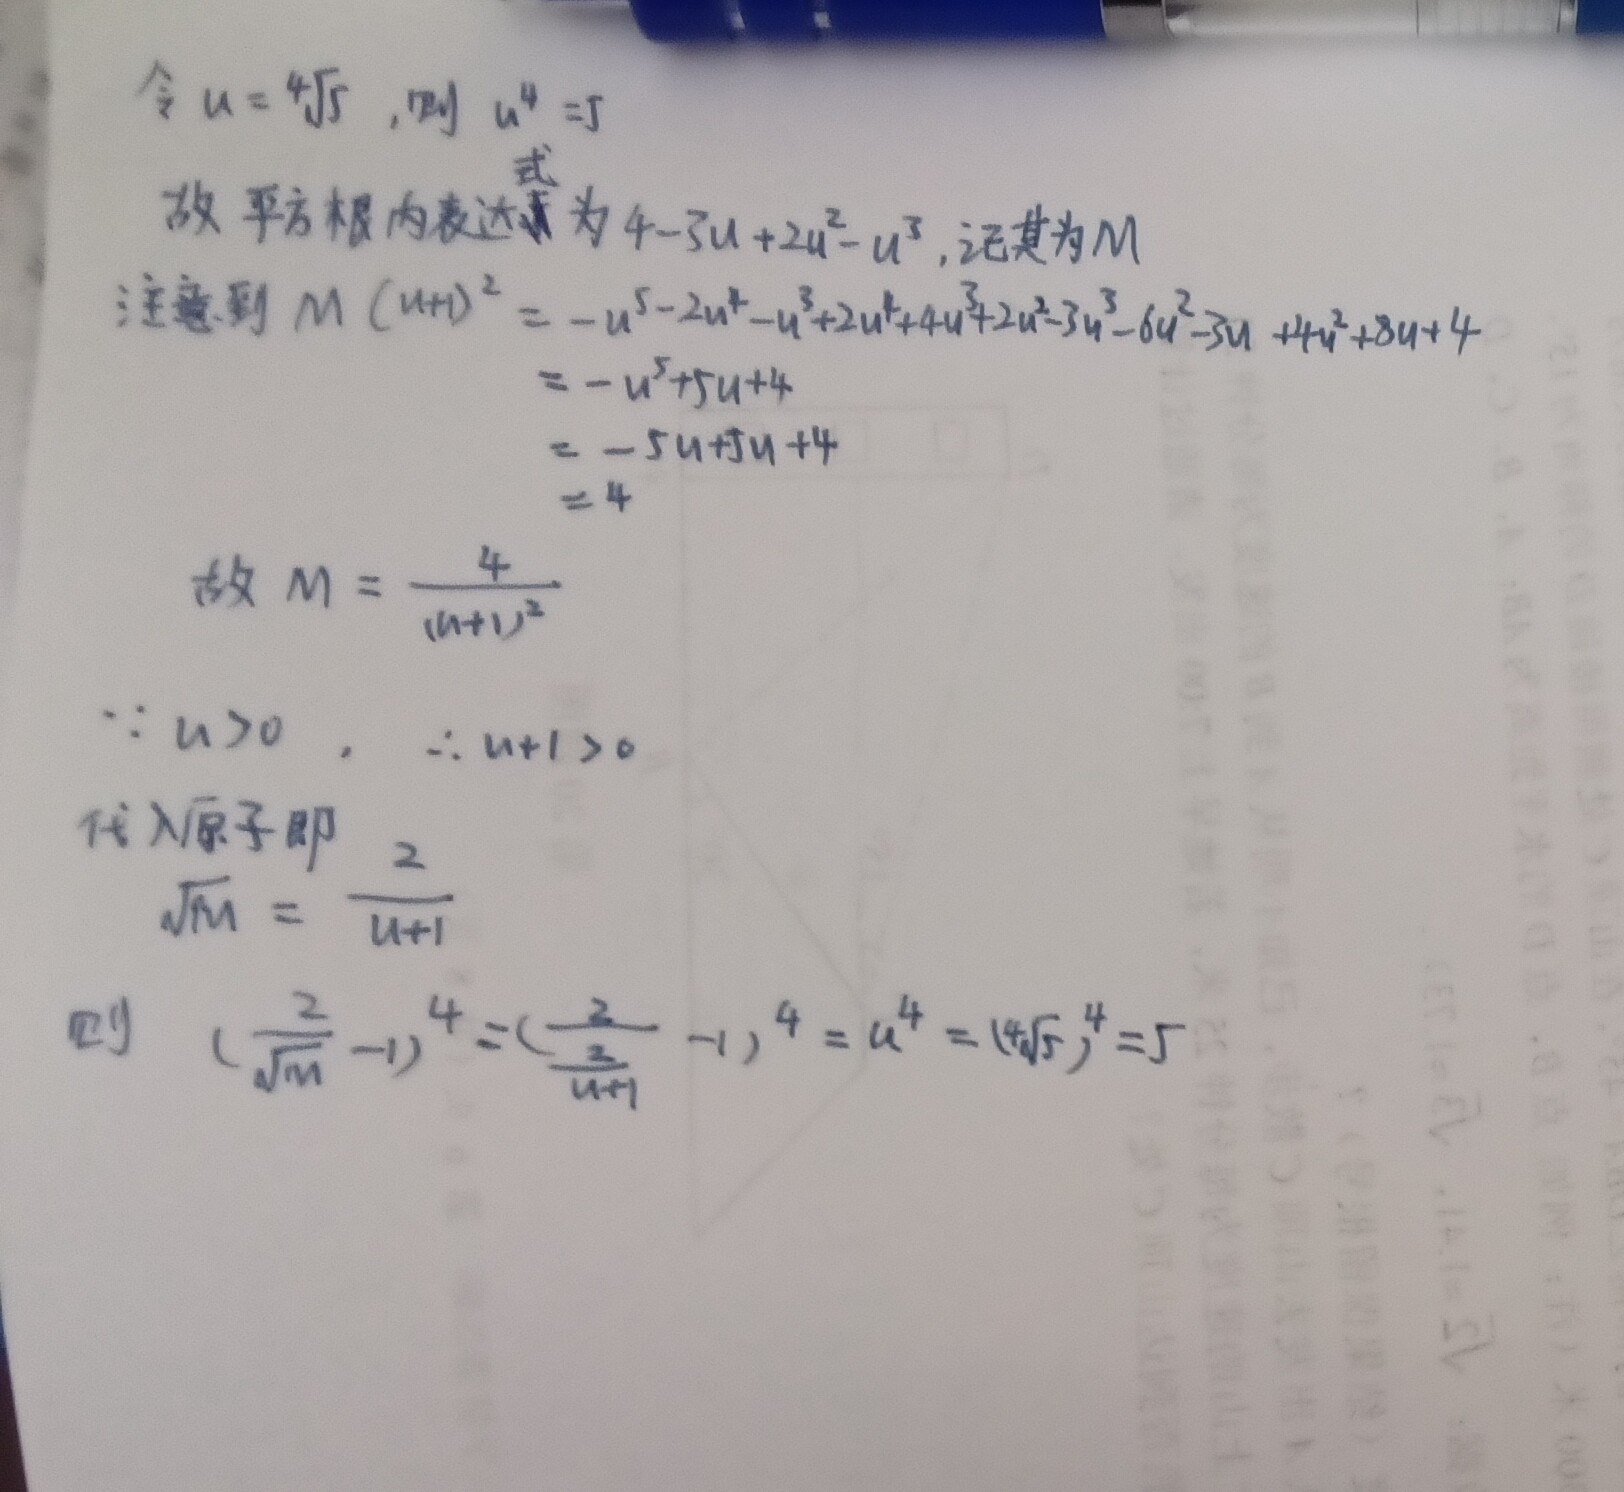 令 u = ∜5 , 则 u⁴ = 5
故平方根内表达式为 4-3u+2u²-u³, 记其为M
注意到 M(u+1)² = -u⁵-2u⁴-u³+2u⁴+4u³+2u²-3u³-6u²-3u+4u²+8u+4
= -u⁵+5u+4
= -5u+5u+4
= 4
故 M = 4/(u+1)²
∵ u>0 , ∴ u+1>0
代入原子即
√M = 2/(u+1)
则 (2/√M -1)⁴ = (2/(2/(u+1)) -1)⁴ = u⁴ = (∜5)⁴ = 5